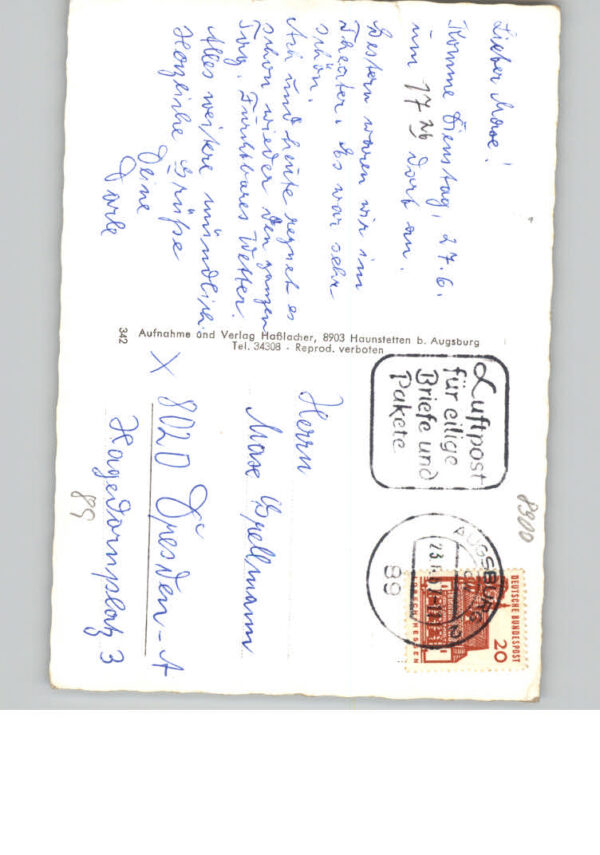 Lieber Maxe!
Komme Dienstag, 27.6.
um 17 26 dort an.
Gestern waren wir im
Theater. Es war sehr
schön.
Ach und heute regnet es
schon wieder den ganzen
Tag. Furchtbares Wetter.
Alles weitere mündlich.
Herzliche Grüße
Deine
342
Aufnahme und Verlag Haßlacher, 8903 Haunstetten b. Augsburg
Tel. 34308 · Reprod. verboten
Luftpost
für eilige
Briefe und
Pakete
8900
AUGSBURG
89
DEUTSCHE BUNDESPOST
20
Herrn
Maxe
X 8020 Dresden-A
Hagedornplatz 3
89